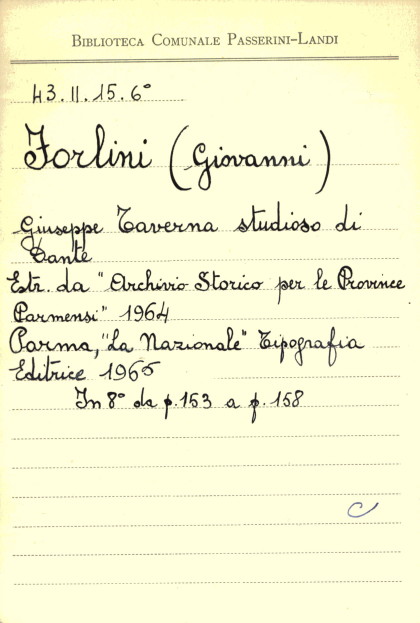 BIBLIOTECA COMUNALE PASSERINI-LANDI
43.II.15.6°
Forlini (Giovanni)
Giuseppe Taverna studioso di
Dante
Estr. da "Archivio Storico per le Province
Parmensi" 1964
Parma, "La Nazionale" Tipografia
Editrice 1965
In 8° da p. 153 a p. 158
C